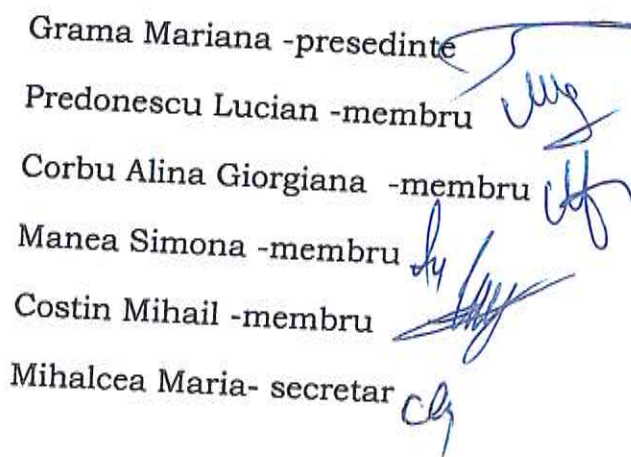 Grama Mariana -presedinte
Predonescu Lucian -membru
Corbu Alina Giorgiana -membru
Manea Simona -membru
Costin Mihail -membru
Mihalcea Maria- secretar